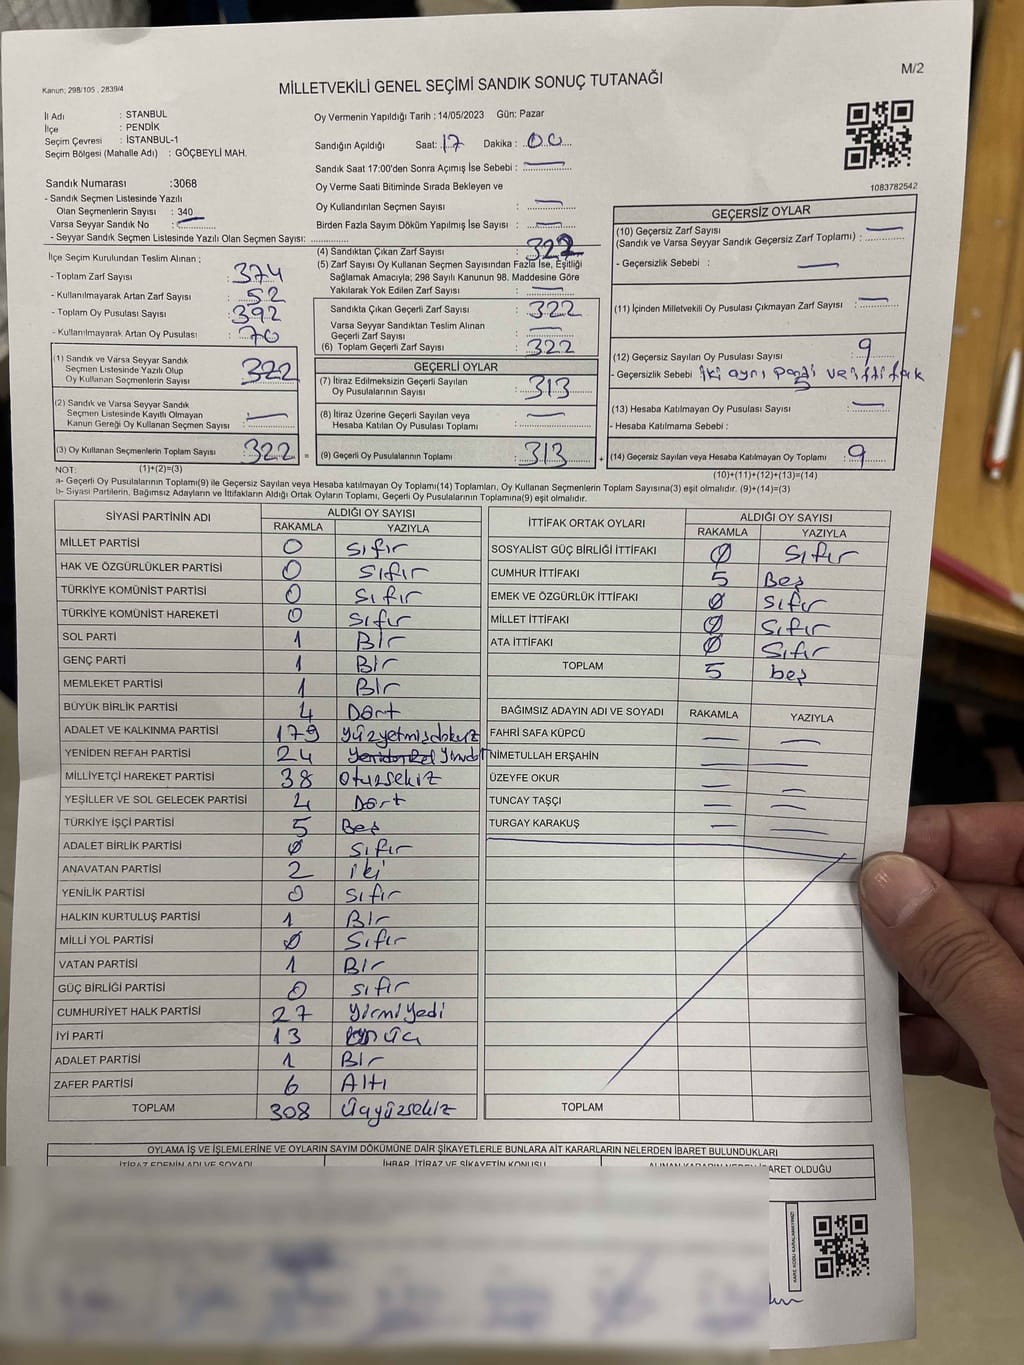 M/2
Kanun; 298/105 , 2839/4
MİLLETVEKİLİ GENEL SEÇİMİ SANDIK SONUÇ TUTANAĞI
İl Adı : STANBUL
İlçe : PENDİK
Seçim Çevresi : İSTANBUL-1
Seçim Bölgesi (Mahalle Adı) : GÖÇBEYLİ MAH.
Oy Vermenin Yapıldığı Tarih : 14/05/2023 Gün: Pazar
Sandığın Açıldığı Saat: 17 Dakika : 00
Sandık Saat 17:00'den Sonra Açımış İse Sebebi : —
Oy Verme Saati Bitiminde Sırada Bekleyen ve
Oy Kullandırılan Seçmen Sayısı : —
Birden Fazla Sayım Döküm Yapılmış İse Sayısı : —
1083782542
Sandık Numarası :3068
- Sandık Seçmen Listesinde Yazılı
Olan Seçmenlerin Sayısı : 340
Varsa Seyyar Sandık No : —
- Seyyar Sandık Seçmen Listesinde Yazılı Olan Seçmen Sayısı: ..............
İlçe Seçim Kurulundan Teslim Alınan ;
- Toplam Zarf Sayısı : 374
- Kullanılmayarak Artan Zarf Sayısı : 52
- Toplam Oy Pusulası Sayısı : 392
- Kullanılmayarak Artan Oy Pusulası : 70
(1) Sandık ve Varsa Seyyar Sandık
Seçmen Listesinde Yazılı Olup
Oy Kullanan Seçmenlerin Sayısı : 322
(2) Sandık ve Varsa Seyyar Sandık
Seçmen Listesinde Kayıtlı Olmayan
Kanun Gereği Oy Kullanan Seçmen Sayısı : —
(3) Oy Kullanan Seçmenlerin Toplam Sayısı : 322 =
(4) Sandıktan Çıkan Zarf Sayısı : 322
(5) Zarf Sayısı Oy Kullanan Seçmen Sayısından Fazla İse, Eşitliği
Sağlamak Amacıyla; 298 Sayılı Kanunun 98. Maddesine Göre
Yakılarak Yok Edilen Zarf Sayısı : —
Sandıkta Çıkan Geçerli Zarf Sayısı : 322
Varsa Seyyar Sandıktan Teslim Alınan
Geçerli Zarf Sayısı : —
(6) Toplam Geçerli Zarf Sayısı : 322
GEÇERLİ OYLAR
(7) İtiraz Edilmeksizin Geçerli Sayılan
Oy Pusulalarının Sayısı : 313
(8) İtiraz Üzerine Geçerli Sayılan veya
Hesaba Katılan Oy Pusulası Toplamı : —
(9) Geçerli Oy Pusulalarının Toplamı : 313 +
GEÇERSİZ OYLAR
(10) Geçersiz Zarf Sayısı
(Sandık ve Varsa Seyyar Sandık Geçersiz Zarf Toplamı) : —
- Geçersizlik Sebebi : —
(11) İçinden Milletvekili Oy Pusulası Çıkmayan Zarf Sayısı : —
(12) Geçersiz Sayılan Oy Pusulası Sayısı : 9
- Geçersizlik Sebebi iki ayrı parti ve ittifak
(13) Hesaba Katılmayan Oy Pusulası Sayısı : —
- Hesaba Katılmama Sebebi :
(14) Geçersiz Sayılan veya Hesaba Katılmayan Oy Toplamı : 9
NOT: (1)+(2)=(3)
(10)+(11)+(12)+(13)=(14)
a- Geçerli Oy Pusulalarının Toplamı(9) ile Geçersiz Sayılan veya Hesaba katılmayan Oy Toplamı(14) Toplamları, Oy Kullanan Seçmenlerin Toplam Sayısına(3) eşit olmalıdır. (9)+(14)=(3)
b- Siyasi Partilerin, Bağımsız Adayların ve İttifakların Aldığı Ortak Oyların Toplamı, Geçerli Oy Pusulalarının Toplamına(9) eşit olmalıdır.
SİYASİ PARTİNİN ADI ALDIĞI OY SAYISI
RAKAMLA YAZIYLA
MİLLET PARTİSİ 0 sıfır
HAK VE ÖZGÜRLÜKLER PARTİSİ 0 sıfır
TÜRKİYE KOMÜNİST PARTİSİ 0 sıfır
TÜRKİYE KOMÜNİST HAREKETİ 0 sıfır
SOL PARTİ 1 Bir
GENÇ PARTİ 1 Bir
MEMLEKET PARTİSİ 1 Bir
BÜYÜK BİRLİK PARTİSİ 4 Dört
ADALET VE KALKINMA PARTİSİ 179 yüzyetmişdokuz
YENİDEN REFAH PARTİSİ 24
MİLLİYETÇİ HAREKET PARTİSİ 38 Otuzsekiz
YEŞİLLER VE SOL GELECEK PARTİSİ 4 Dört
TÜRKİYE İŞÇİ PARTİSİ 5 Beş
ADALET BİRLİK PARTİSİ 0 sıfır
ANAVATAN PARTİSİ 2 iki
YENİLİK PARTİSİ 0 sıfır
HALKIN KURTULUŞ PARTİSİ 1 Bir
MİLLİ YOL PARTİSİ 0 Sıfır
VATAN PARTİSİ 1 Bir
GÜÇ BİRLİĞİ PARTİSİ 0 sıfır
CUMHURİYET HALK PARTİSİ 27 yirmiyedi
İYİ PARTİ 13 onüç
ADALET PARTİSİ 1 Bir
ZAFER PARTİSİ 6 Altı
TOPLAM 308 üçyüzsekiz
İTTİFAK ORTAK OYLARI ALDIĞI OY SAYISI
RAKAMLA YAZIYLA
SOSYALİST GÜÇ BİRLİĞİ İTTİFAKI 0 Sıfır
CUMHUR İTTİFAKI 5 Beş
EMEK VE ÖZGÜRLÜK İTTİFAKI 0 Sıfır
MİLLET İTTİFAKI 0 Sıfır
ATA İTTİFAKI 0 Sıfır
TOPLAM 5 beş
BAĞIMSIZ ADAYIN ADI VE SOYADI RAKAMLA YAZIYLA
FAHRİ SAFA KÜPCÜ — —
NİMETULLAH ERŞAHİN — —
ÜZEYFE OKUR — —
TUNCAY TAŞÇI — —
TURGAY KARAKUŞ — —
TOPLAM
OYLAMA İŞ VE İŞLEMLERİNE VE OYLARIN SAYIM DÖKÜMÜNE DAİR ŞİKAYETLERLE BUNLARA AİT KARARLARIN NELERDEN İBARET BULUNDUKLARI
İTİRAZ EDENİN ADI VE SOYADI İHBAR, İTİRAZ VE ŞİKAYETİN KONUSU
KARE KODU KARALAMAYINIZ!